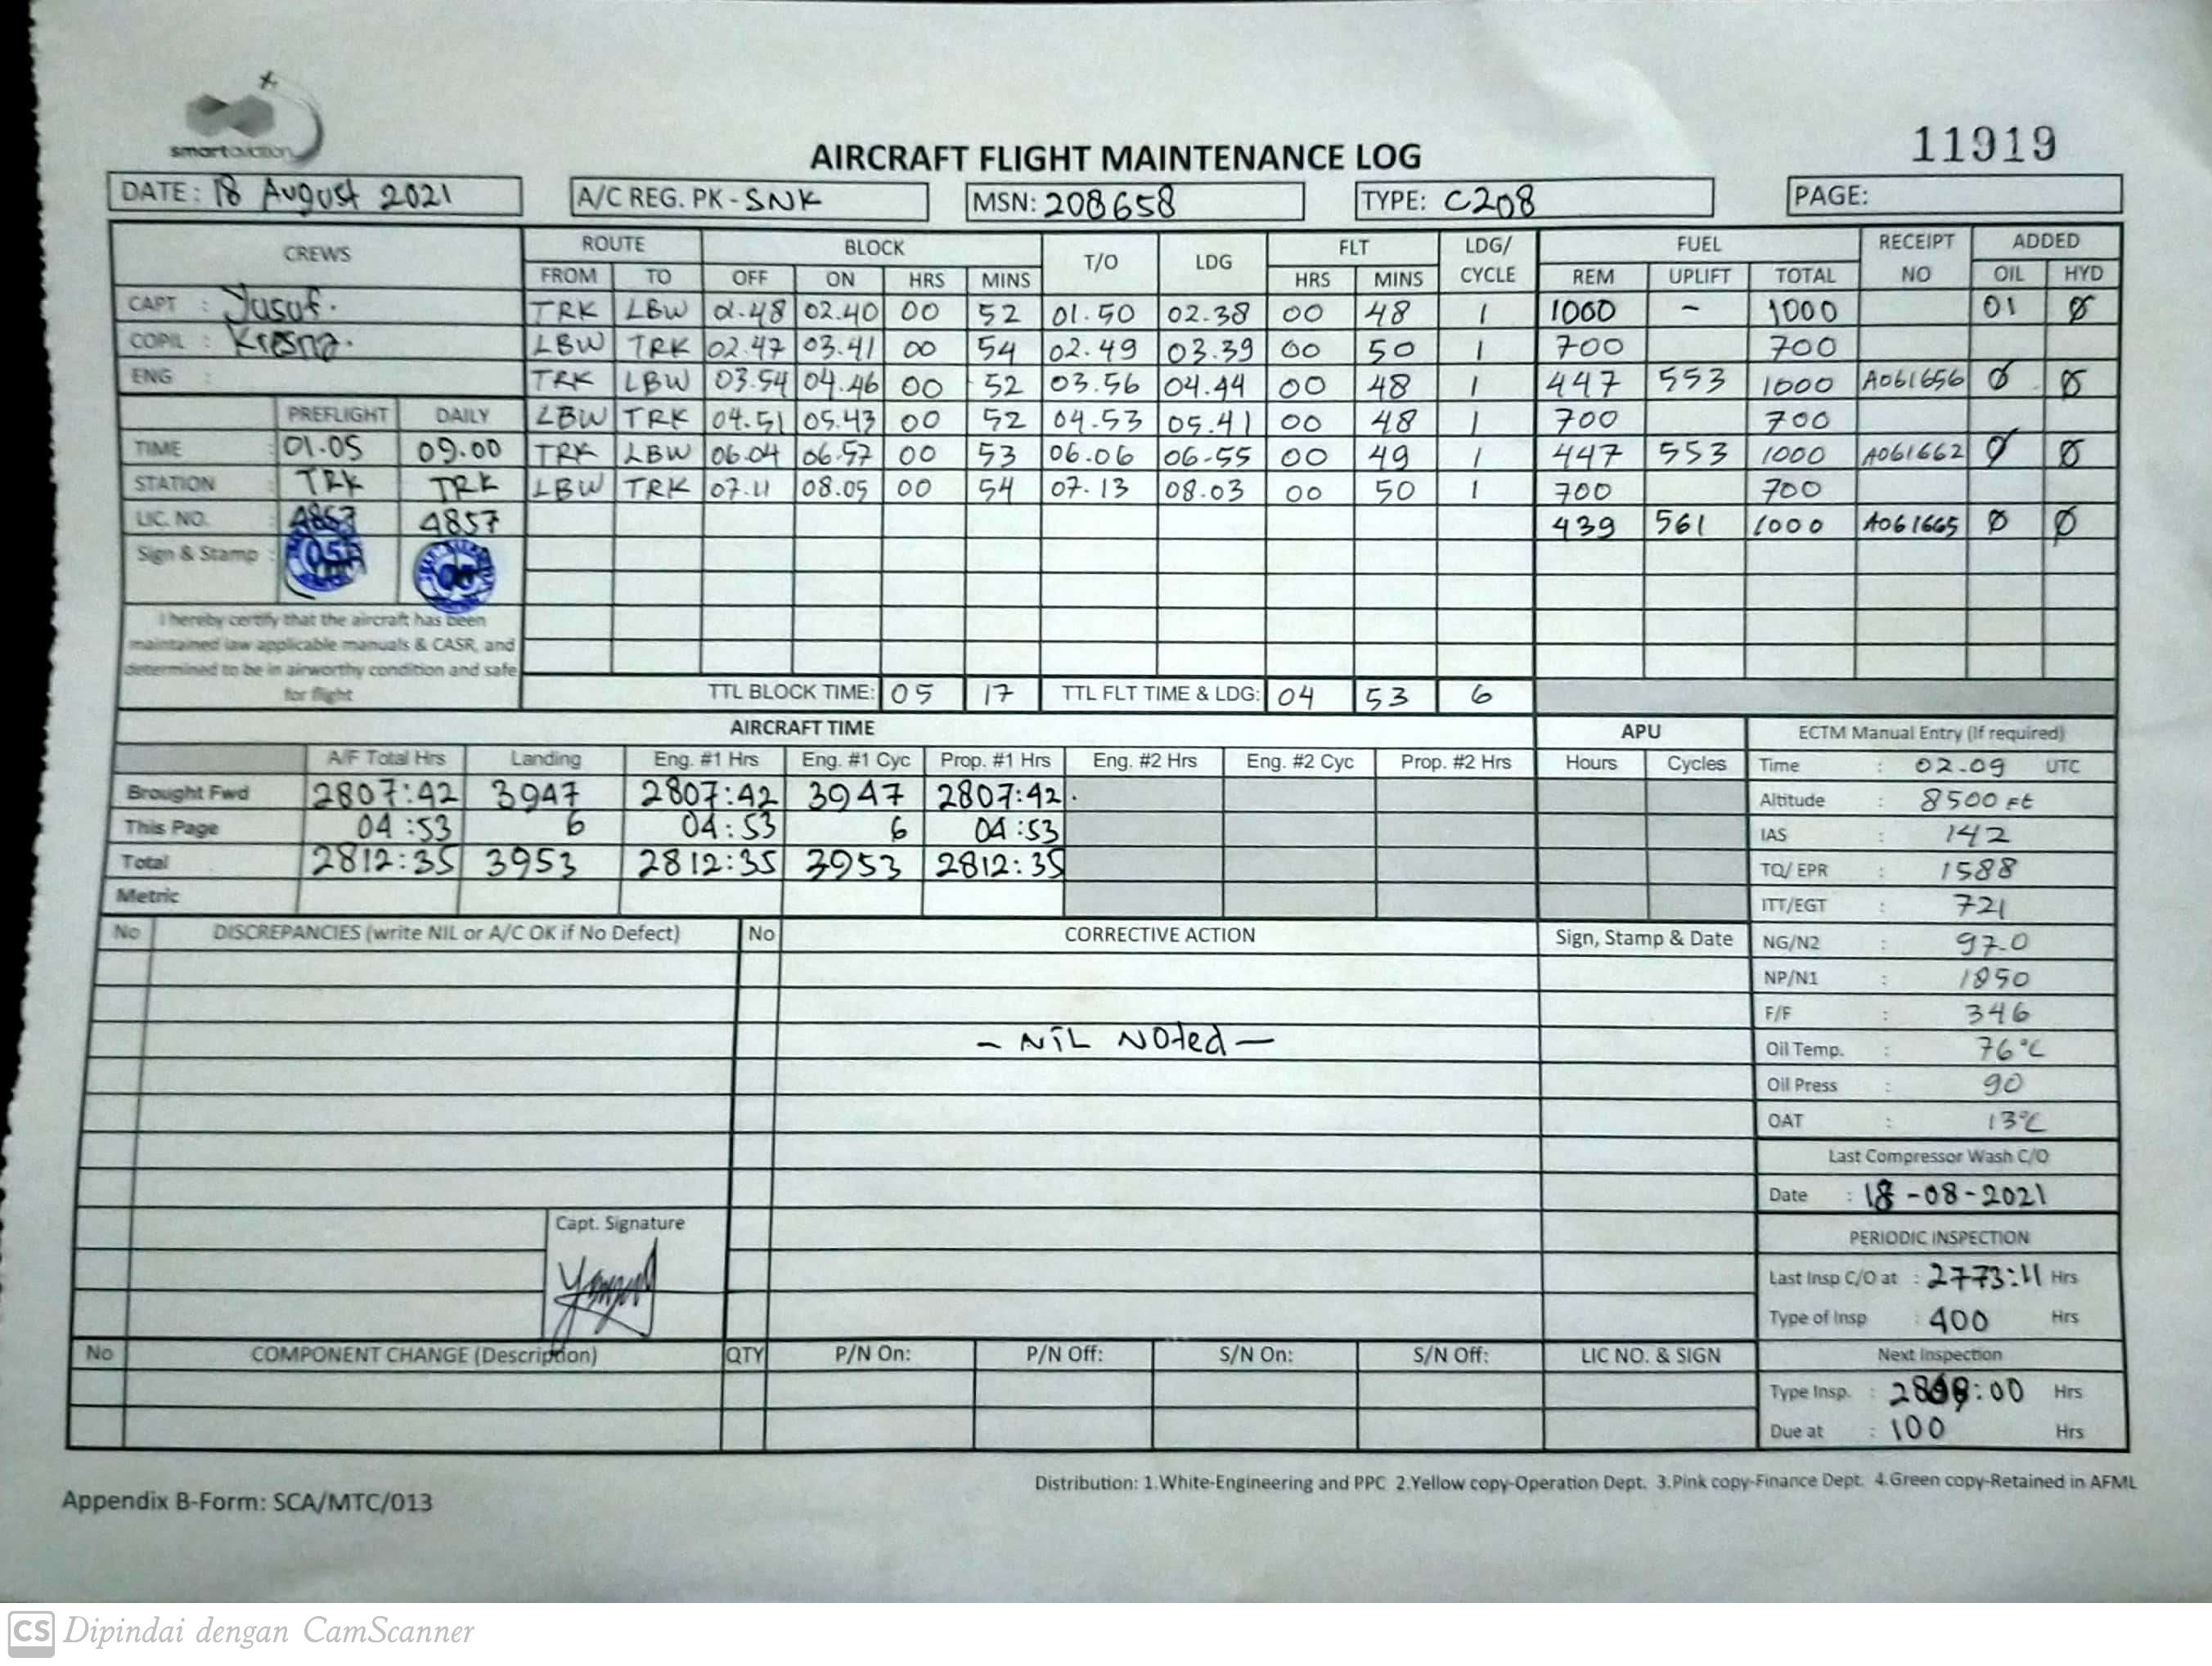 smartaviation
AIRCRAFT FLIGHT MAINTENANCE LOG
11919
DATE: 18 August 2021 A/C REG. PK - SNK MSN: 208658 TYPE: C208 PAGE:
CREWS ROUTE BLOCK T/O LDG FLT LDG/ CYCLE FUEL RECEIPT NO ADDED
FROM TO OFF ON HRS MINS HRS MINS REM UPLIFT TOTAL OIL HYD
CAPT : Yusuf. TRK LBW 01.48 02.40 00 52 01.50 02.38 00 48 1 1000 - 1000 01 Ø
COPIL : Kresna. LBW TRK 02.47 03.41 00 54 02.49 03.39 00 50 1 700 700
ENG : TRK LBW 03.54 04.46 00 52 03.56 04.44 00 48 1 447 553 1000 A061656 Ø Ø
PREFLIGHT DAILY LBW TRK 04.51 05.43 00 52 04.53 05.41 00 48 1 700 700
TIME : 01.05 09.00 TRK LBW 06.04 06.57 00 53 06.06 06.55 00 49 1 447 553 1000 A061662 Ø Ø
STATION : TRK TRK LBW TRK 07.11 08.05 00 54 07.13 08.03 00 50 1 700 700
LIC. NO. : 4857 439 561 1000 A061665 Ø Ø
Sign & Stamp :
I hereby certify that the aircraft has been
maintained iaw applicable manuals & CASR, and
determined to be in airworthy condition and safe
for flight
TTL BLOCK TIME: 05 17 TTL FLT TIME & LDG: 04 53 6
AIRCRAFT TIME APU ECTM Manual Entry (If required)
A/F Total Hrs Landing Eng. #1 Hrs Eng. #1 Cyc Prop. #1 Hrs Eng. #2 Hrs Eng. #2 Cyc Prop. #2 Hrs Hours Cycles Time : 02.09 UTC
Brought Fwd 2807:42 3947 2807:42 3947 2807:42. Altitude : 8500 Ft
This Page 04:53 6 04:53 6 04:53 IAS : 142
Total 2812:35 3953 2812:35 3953 2812:35 TQ/ EPR : 1588
Metric ITT/EGT : 721
No DISCREPANCIES (write NIL or A/C OK if No Defect) No CORRECTIVE ACTION Sign, Stamp & Date NG/N2 : 97.0
NP/N1 : 1850
F/F : 346
- NIL Noted -
Oil Temp. : 76°C
Oil Press : 90
OAT : 13°C
Last Compressor Wash C/O
Date : 18-08-2021
Capt. Signature
PERIODIC INSPECTION
Last Insp C/O at : 2773:11 Hrs
Type of Insp : 400 Hrs
No COMPONENT CHANGE (Description) QTY P/N On: P/N Off: S/N On: S/N Off: LIC NO. & SIGN Next Inspection
Type Insp. : Hrs
Due at : 100 Hrs
Distribution: 1.White-Engineering and PPC 2.Yellow copy-Operation Dept. 3.Pink copy-Finance Dept. 4.Green copy-Retained in AFML
Appendix B-Form: SCA/MTC/013
CS Dipindai dengan CamScanner